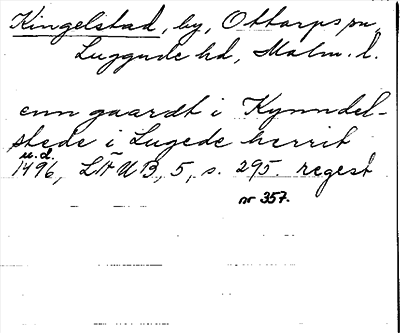 Kingelstad, by, Ottarps sn,
Luggude hd, Malm. l.
enn gaardt i Kynndel-
stede i Lugede herrit
u. d.
1496, LÄUB, 5, s. 295. regest
nr 357.